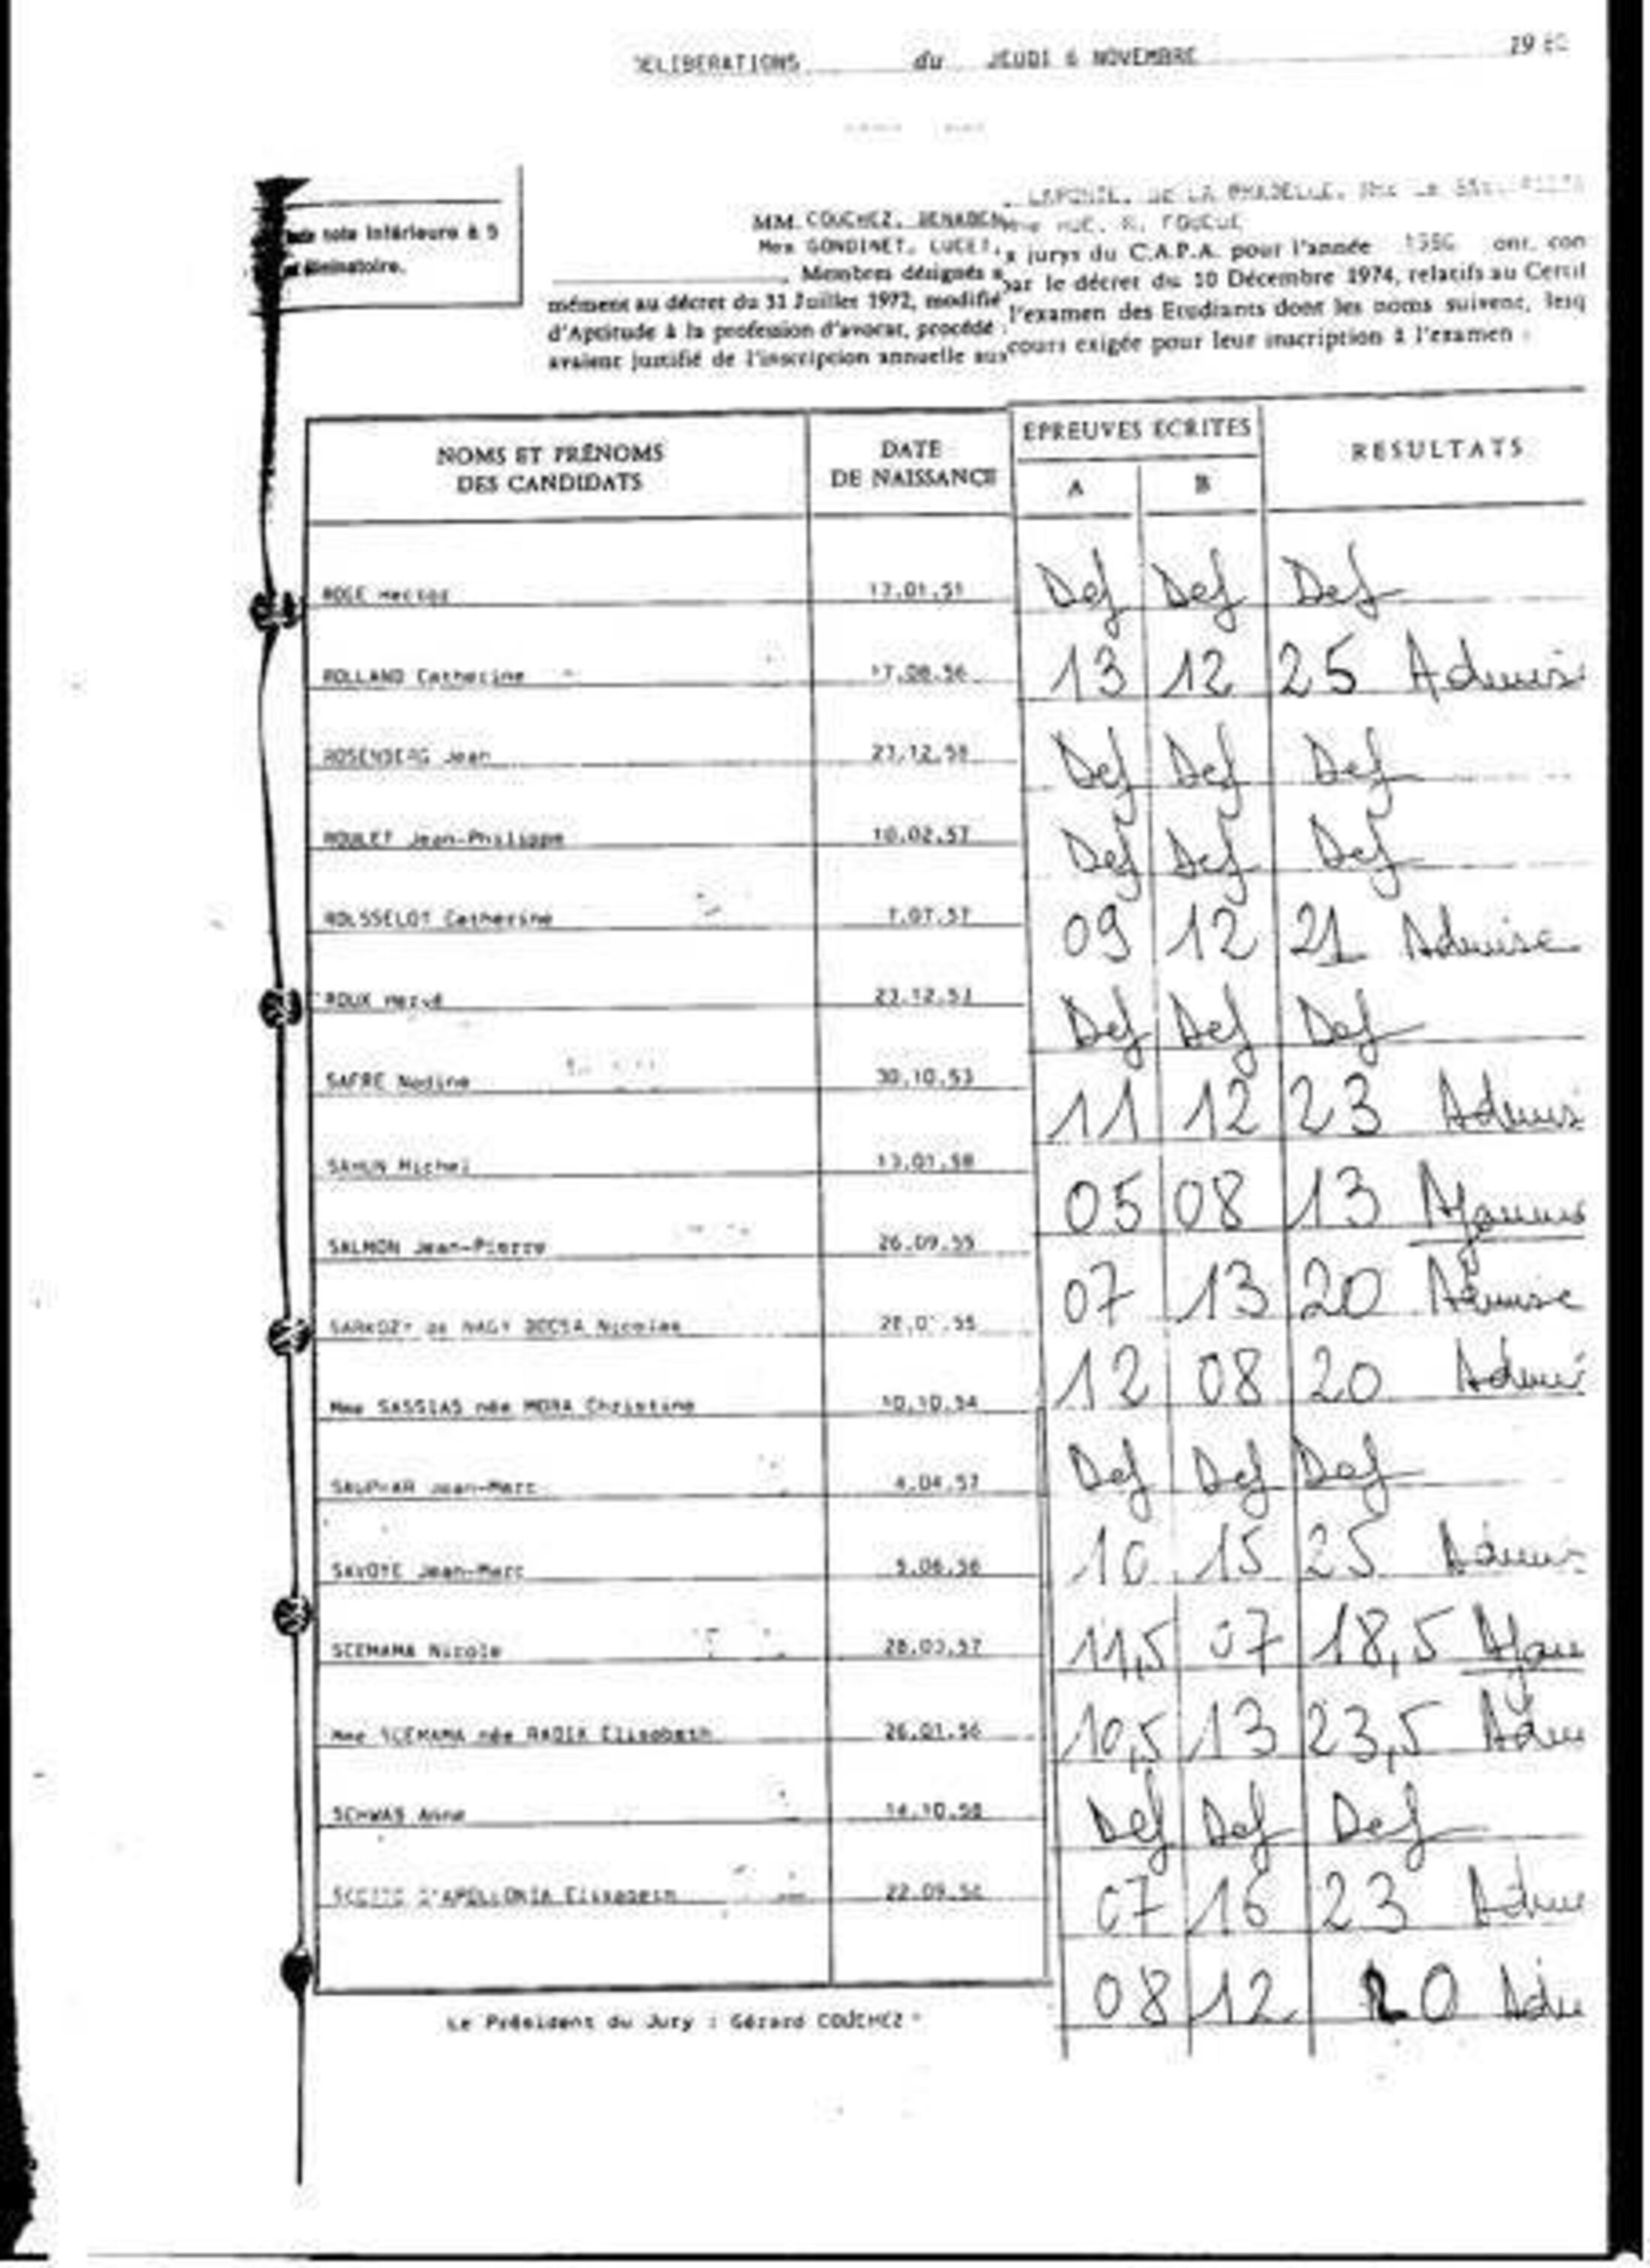 DELIBERATIONS du JEUDI 6 NOVEMBRE 19
note inférieure à 5
éliminatoire.
MM. COUCHEZ, BENABEN
Mes GONDINET, LUCET,
Membres désignés
mément au décret du 31 Juillet 1972, modifié
d'Aptitude à la profession d'avocat, procédé
avaient justifié de l'inscription annuelle aux
LAPORTE, DE LA PRADELLE,
jurys du C.A.P.A. pour l'année ont, con
par le décret du 10 Décembre 1974, relatifs au Certif
l'examen des Etudiants dont les noms suivent, lesq
cours exigée pour leur inscription à l'examen :
NOMS ET PRÉNOMS
DES CANDIDATS
DATE
DE NAISSANCE
EPREUVES ECRITES
A B
RESULTATS
ROSE Hector 13.01.51 Def Def Def
ROLLAND Catherine 17.08.56 13 12 25 Admis
ROSENBERG Jean 23.12.58 Def Def Def
ROULET Jean-Philippe 10.02.57 Def Def Def
ROUSSELOT Catherine 7.07.57 09 12 21 Admise
ROUX Hervé 23.12.53 Def Def Def
SAFRE Nadine 30.10.53 11 12 23 Admis
SAHUN Michel 13.01.58 05 08 13 Ajourné
SALMON Jean-Pierre 26.09.55 07 13 20 Admise
SARKOZY de NAGY BOCSA Nicolas 28.01.55 12 08 20 Admi
Mme SASSIAS née MORA Christine 10.10.54 Def Def Def
SAUPHAR Jean-Marc 4.04.57 10 15 25 Admis
SAVOYE Jean-Marc 5.06.56 11,5 07 18,5 Ajou
SCEMAMA Nicole 28.03.57 10,5 13 23,5 Adm
Mme SCEMAMA née RADIA Elisabeth 26.01.56 Def Def Def
SCHWAB Anne 14.10.58 07 16 23 Adm
SCOTTO D'APOLLONIA Elisabeth 22.09.56 08 12 20 Adm
Le Président du Jury : Gérard COUCHEZ